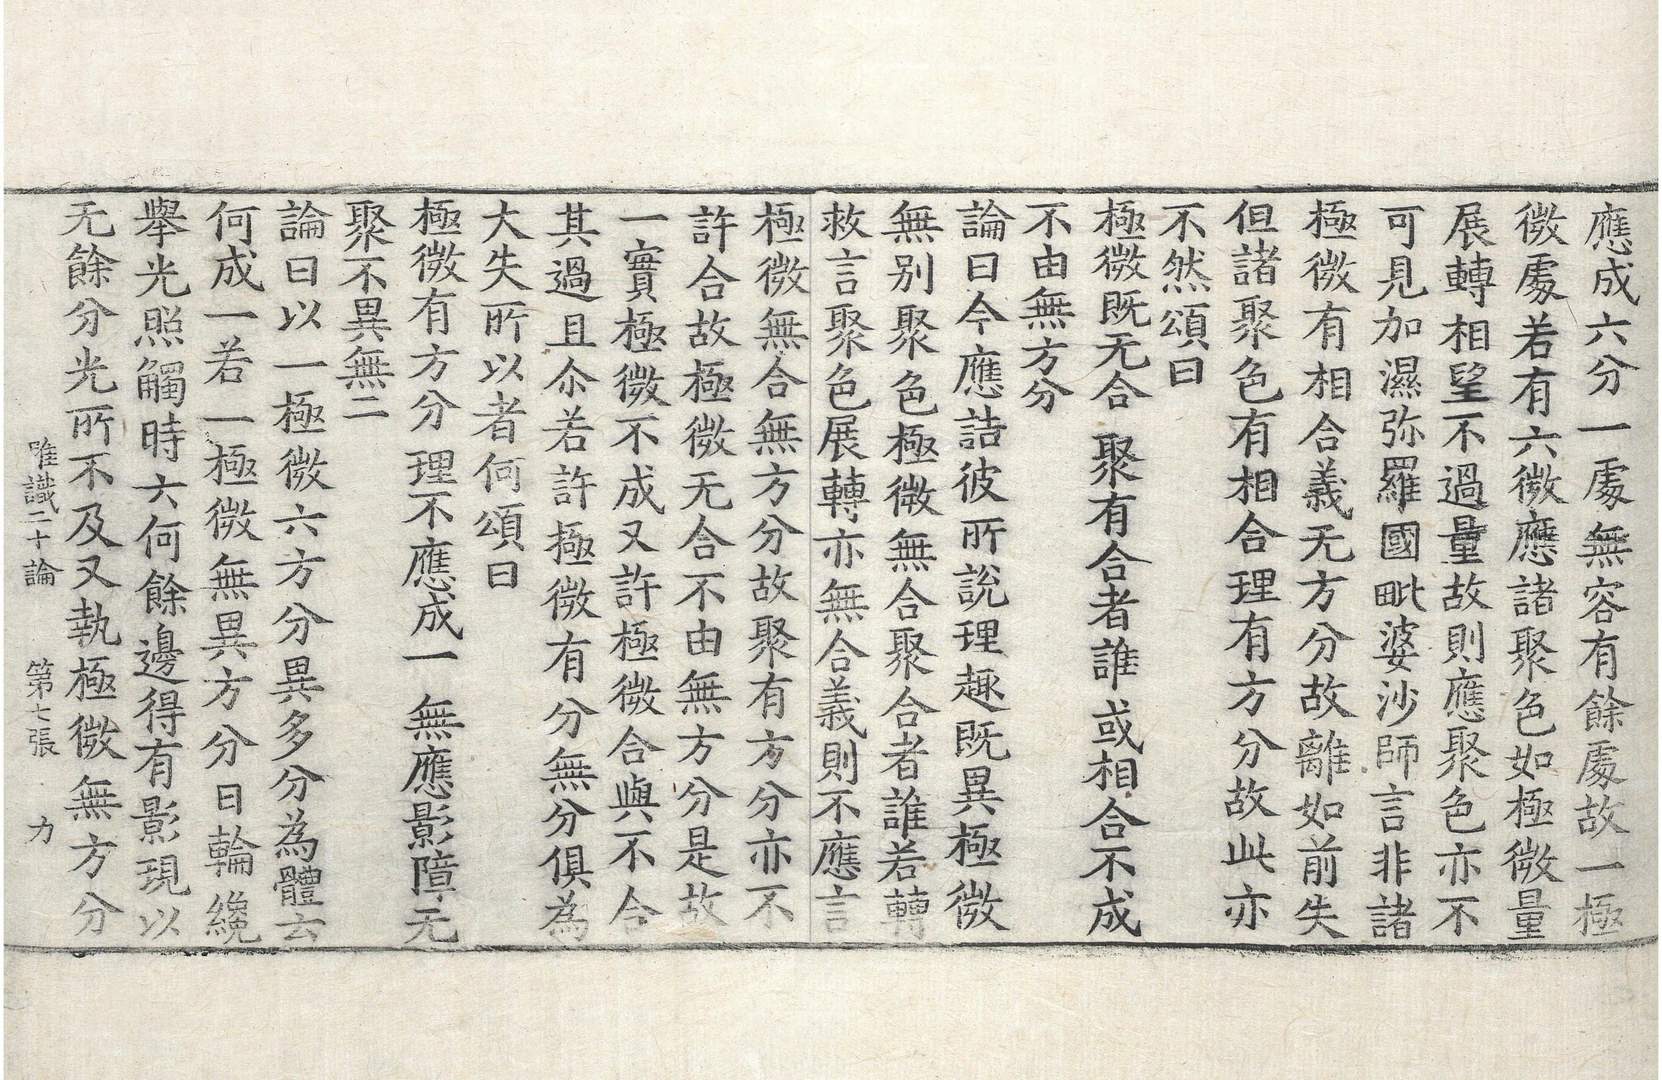 應成六分一處無容有餘處故一極
微處若有六微應諸聚色如極微量
展轉相望不過量故則應聚色亦不
可見加濕弥羅國毗婆沙師言非諸
極微有相合義无方分故離如前失
但諸聚色有相合理有方分故此亦
不然頌曰
極微既无合 聚有合者誰或相合不成
不由無方分
論曰今應詰彼所說理趣既異極微
無別聚色極微無合聚合者誰若轉
救言聚色展轉亦無合義則不應言
極微無合無方分故聚有方分亦不
許合故極微无合不由無方分是故
一實極微不成又許極微合與不合
其過且尒若許極微有分無分俱為
大失所以者何頌曰
極微有方分理不應成一 無應影障无
聚不異無二
論曰以一極微六方分異多分為體云
何成一若一極微無異方分日輪纔
舉光照觸時云何餘邊得有影現以
无餘分光所不及又執極微無方分
唯識二十論 第七張 力